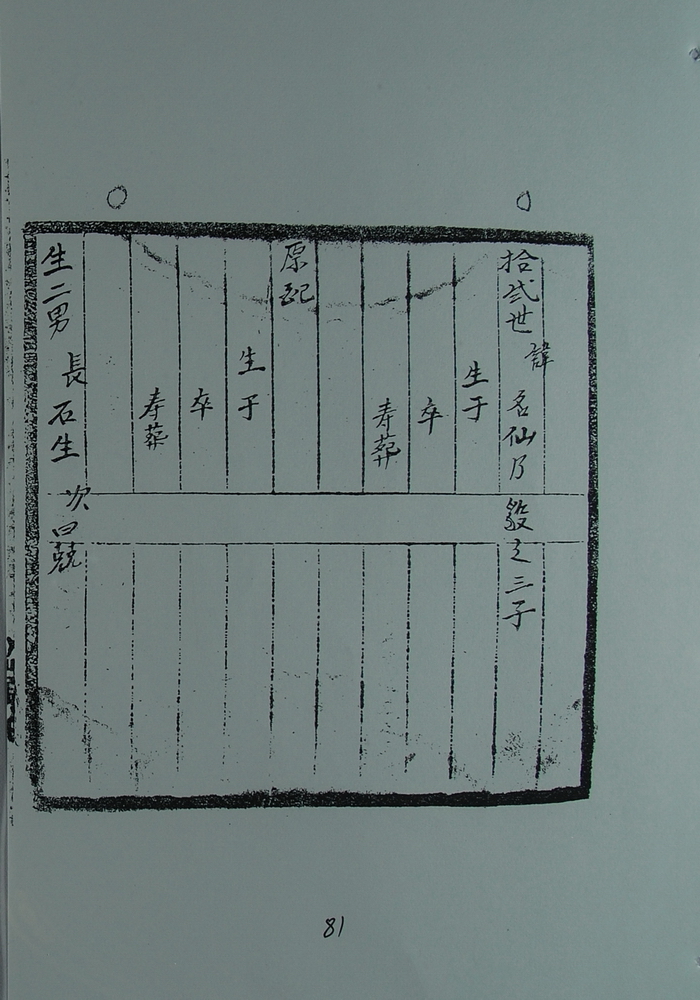 拾弍世 諱 名仙乃毅之三子
生于
卒
寿葬
原配
生于
卒
寿葬
生二男 長石生 次曰兢
81